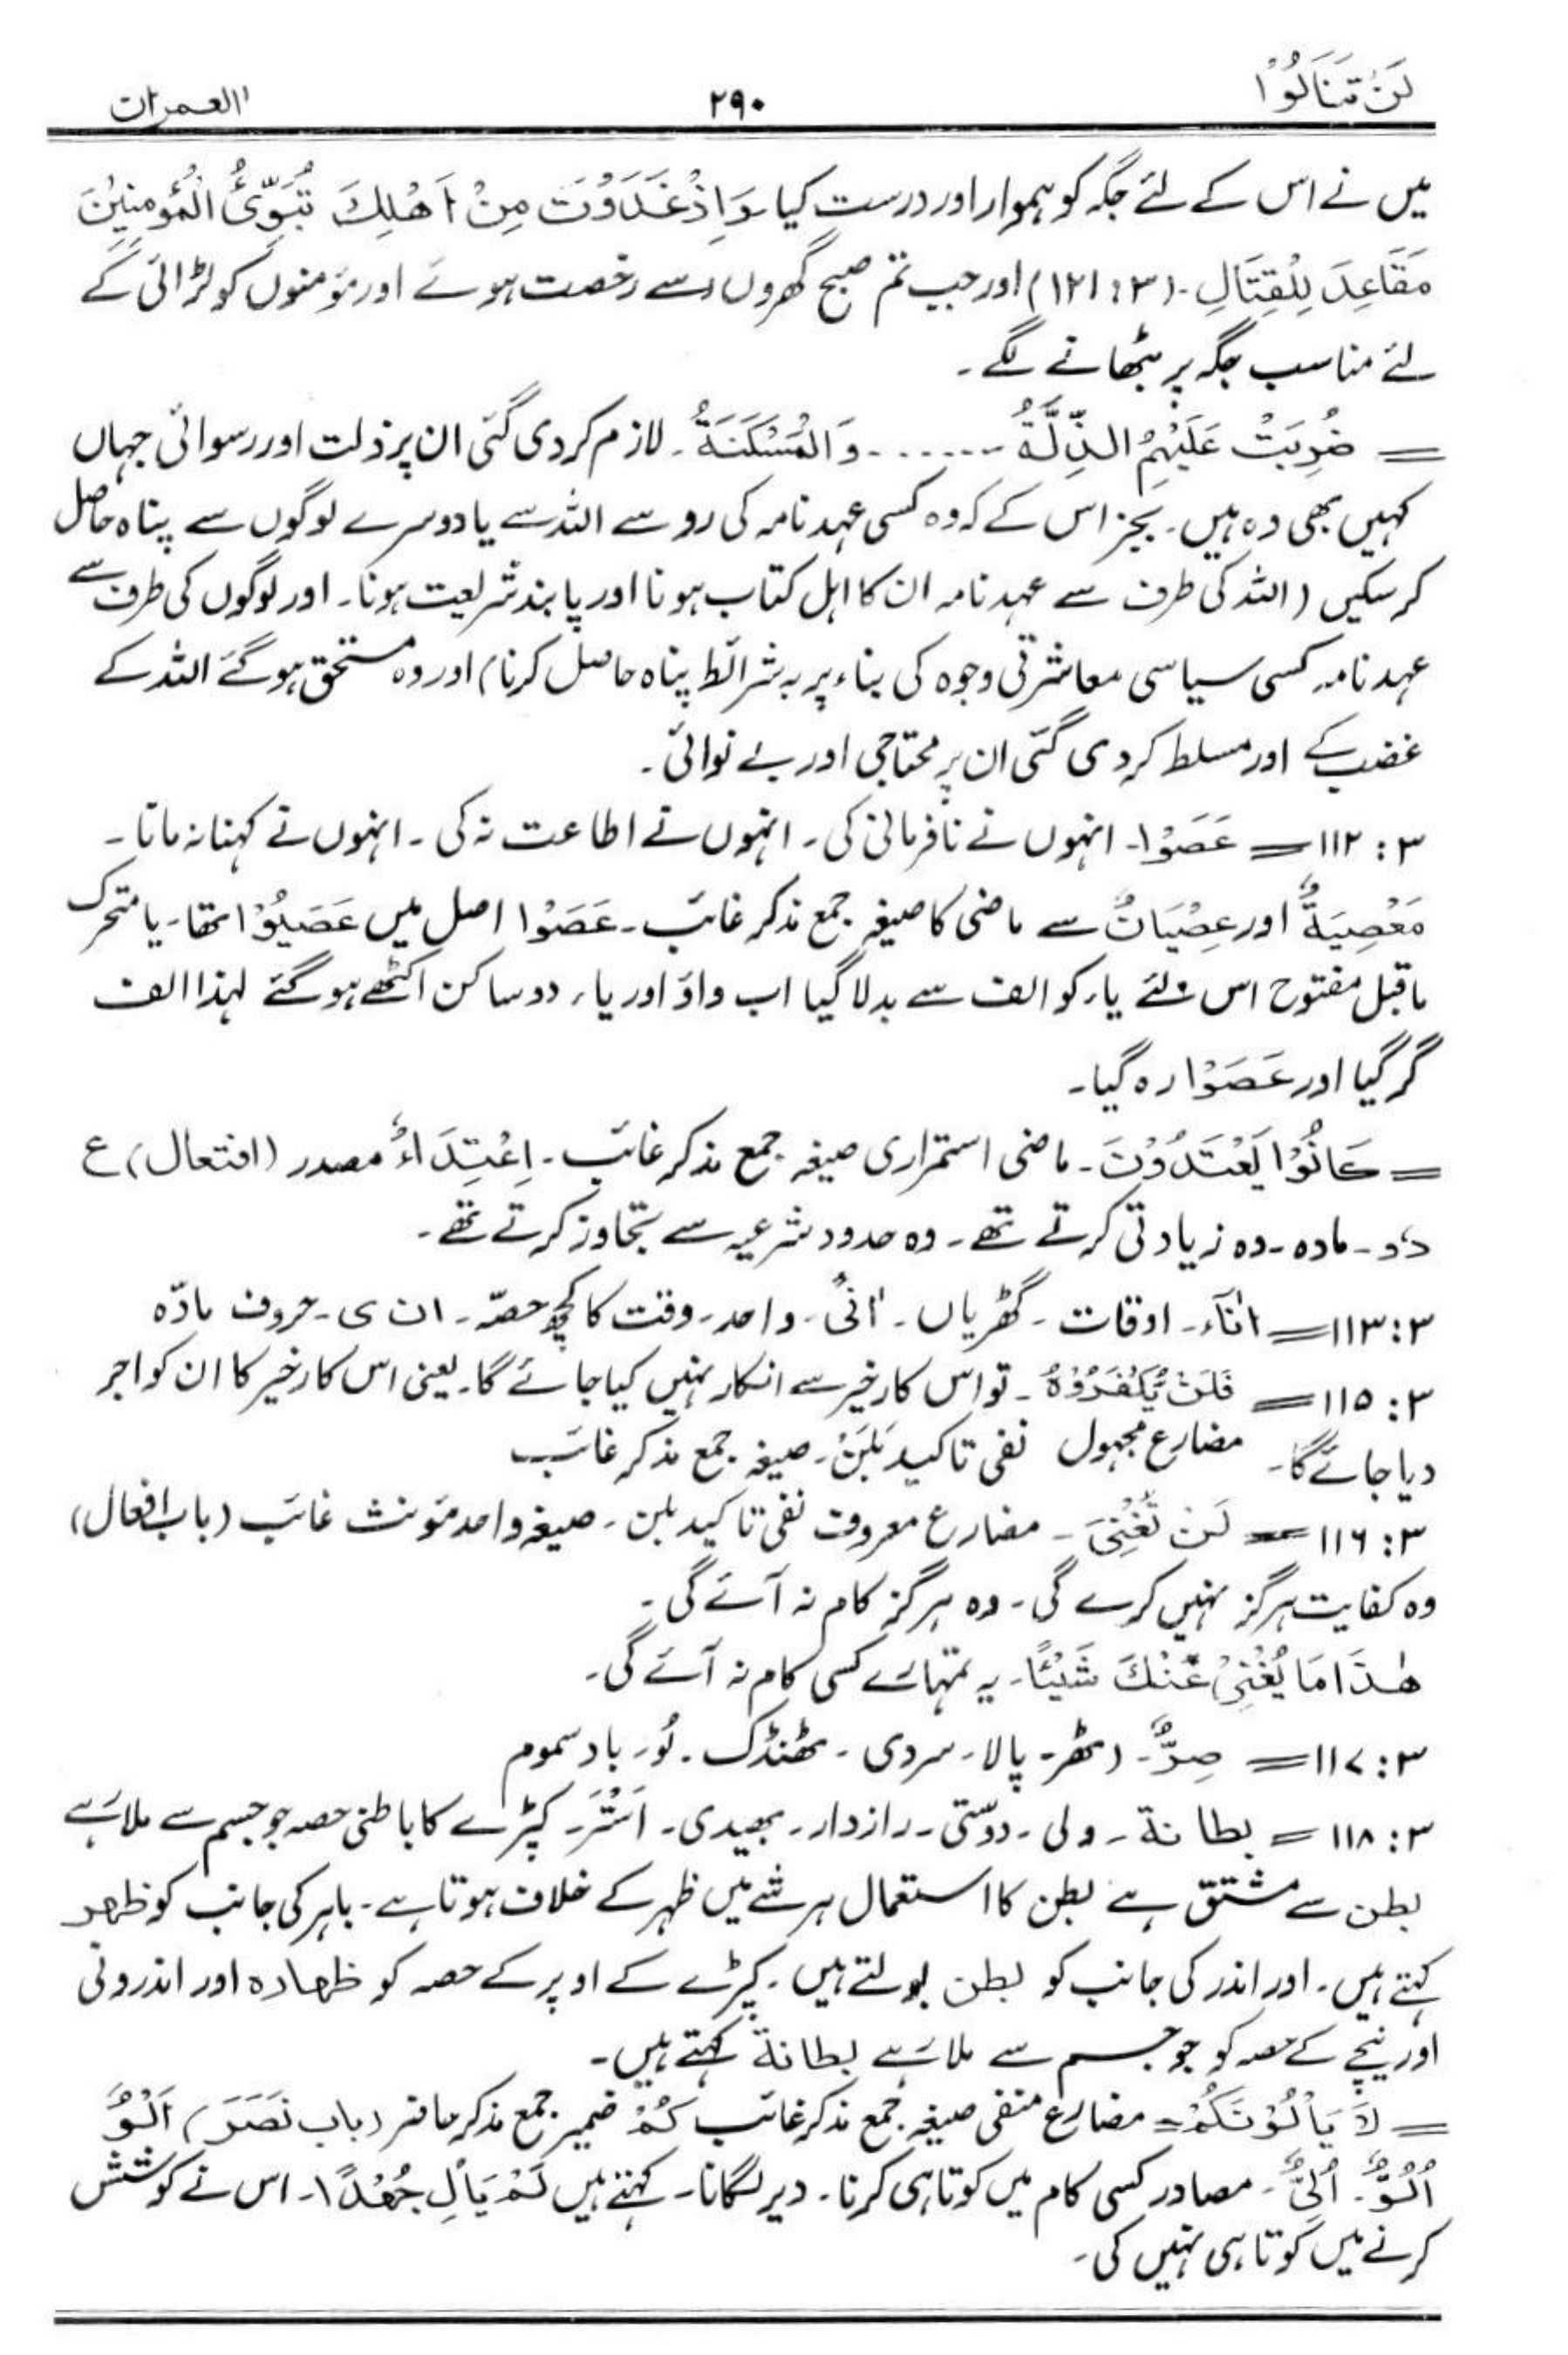 لَنْ تَنَالُوْا ۲۹۰ اٰل عمران
میں نے اس کے لئے جگہ کو ہموار اور درست کیا۔ وَاِذْ غَدَوْتَ مِنْ اَهْلِكَ تُبَوِّئُ الْمُؤْمِنِيْنَ
مَقَاعِدَ لِلْقِتَالِ۔ (۳: ۱۲۱) اور جب تم صبح گھروں سے رخصت ہوئے اور مؤمنوں کو لڑائی کے
لئے مناسب جگہ پر بٹھانے لگے۔
= ضُرِبَتْ عَلَيْهِمُ الذِّلَّةُ ۔۔۔۔۔۔۔ وَالْمَسْكَنَةُ۔ لازم کر دی گئی ان پر ذلت اور رسوائی جہاں
کہیں بھی وہ ہیں۔ بجز اس کے کہ وہ کسی عہد نامہ کی رو سے اللہ سے یا دوسرے لوگوں سے پناہ حاصل
کر سکیں (اللہ کی طرف سے عہد نامہ ان کا اہل کتاب ہونا اور پابند شریعت ہونا۔ اور لوگوں کی طرف سے
عہد نامہ کسی سیاسی معاشرتی وجوہ کی بناء پر بہ شرائط پناہ حاصل کرنا) اور وہ مستحق ہو گئے اللہ کے
غضب کے اور مسلط کر دی گئی ان پر محتاجی اور بے نوائی۔
۳: ۱۱۲ = عَصَوْا۔ انہوں نے نافرمانی کی۔ انہوں نے اطاعت نہ کی۔ انہوں نے کہنا نہ مانا۔
مَعْصِيَةٌ اور عِصْيَانٌ سے ماضی کا صیغہ جمع مذکر غائب۔ عَصَوْا اصل میں عَصَيُوْا تھا۔ یا متحرک
ماقبل مفتوح اس لئے یاء کو الف سے بدلا گیا اب واؤ اور یاء، دو ساکن اکٹھے ہو گئے لہٰذا الف
گر گیا اور عَصَوْا رہ گیا۔
= كَانُوْا يَعْتَدُوْنَ۔ ماضی استمراری صیغہ جمع مذکر غائب۔ اِعْتِدَاءٌ مصدر (افتعال) ع
د و۔ مادہ۔ وہ زیادتی کرتے تھے۔ وہ حدود شرعیہ سے تجاوز کرتے تھے۔
۳: ۱۱۳ = اٰنَآءَ۔ اوقات۔ گھڑیاں۔ اٰنًی۔ واحد۔ وقت کا کچھ حصّہ۔ ا ن ی۔ حروف مادّہ
۳: ۱۱۵ = فَلَنْ يُّكْفَرُوْهُ۔ تو اس کار خیر سے انکار نہیں کیا جائے گا۔ یعنی اس کار خیر کا ان کو اجر
دیا جائے گا۔ مضارع مجہول نفی تاکید بَلَنْ۔ صیغہ جمع مذکر غائب
۳: ۱۱۶ = لَنْ تُغْنِيَ۔ مضارع معروف نفی تاکید بلن۔ صیغہ واحد مؤنث غائب (باب افعال)
وہ کفایت ہرگز نہیں کرے گی۔ وہ ہرگز کام نہ آئے گی۔
هٰذَا مَا يُغْنِيْ عَنْكَ شَيْئًا۔ یہ تمہارے کسی کام نہ آئے گی۔
۳: ۱۱۷ = صِرٌّ۔ ٹھر۔ پالا۔ سردی۔ ٹھنڈک۔ لُو۔ باد سموم
۳: ۱۱۸ = بطانة۔ ولی۔ دوستی۔ رازدار۔ بھیدی۔ اَسْتَر۔ کپڑے کا باطنی حصہ جو جسم سے ملا رہے
بطن سے مشتق ہے بطن کا استعمال ہر شے میں ظہر کے خلاف ہوتا ہے۔ باہر کی جانب کو ظھر
کہتے ہیں۔ اور اندر کی جانب کو بطن بولتے ہیں۔ کپڑے کے اوپر کے حصہ کو ظھارہ اور اندرونی
اور نیچے کے حصہ کو جو جسم سے ملا رہے بطانة کہتے ہیں۔
= لَا يَأْلُوْنَكُمْ = مضارع منفی صیغہ جمع مذکر غائب كُمْ ضمیر جمع مذکر حاضر (باب نَصَرَ) اَلْوٌ
اُلُوٌّ۔ اُلِيٌّ۔ مصادر کسی کام میں کوتاہی کرنا۔ دیر لگانا۔ کہتے ہیں لَمْ يَأْلِ جُهْدًا۔ اس نے کوشش
کرنے میں کوتاہی نہیں کی۔